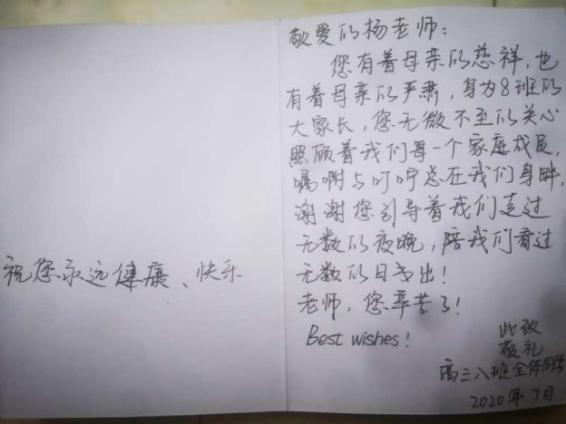 祝您永远健康、快乐
敬爱的杨老师：
您有着母亲的慈祥，也
有着母亲的严肃，身为8班的
大家长，您无微不至的关心
照顾着我们每一个家庭成员，
嘱啊与叮咛总在我们身畔，
谢谢您引导着我们走过
无数的夜晚，陪我们看过
无数的日出！
老师，您辛苦了！
Best wishes!
此致
敬礼
高三八班全体同学
2020年7月